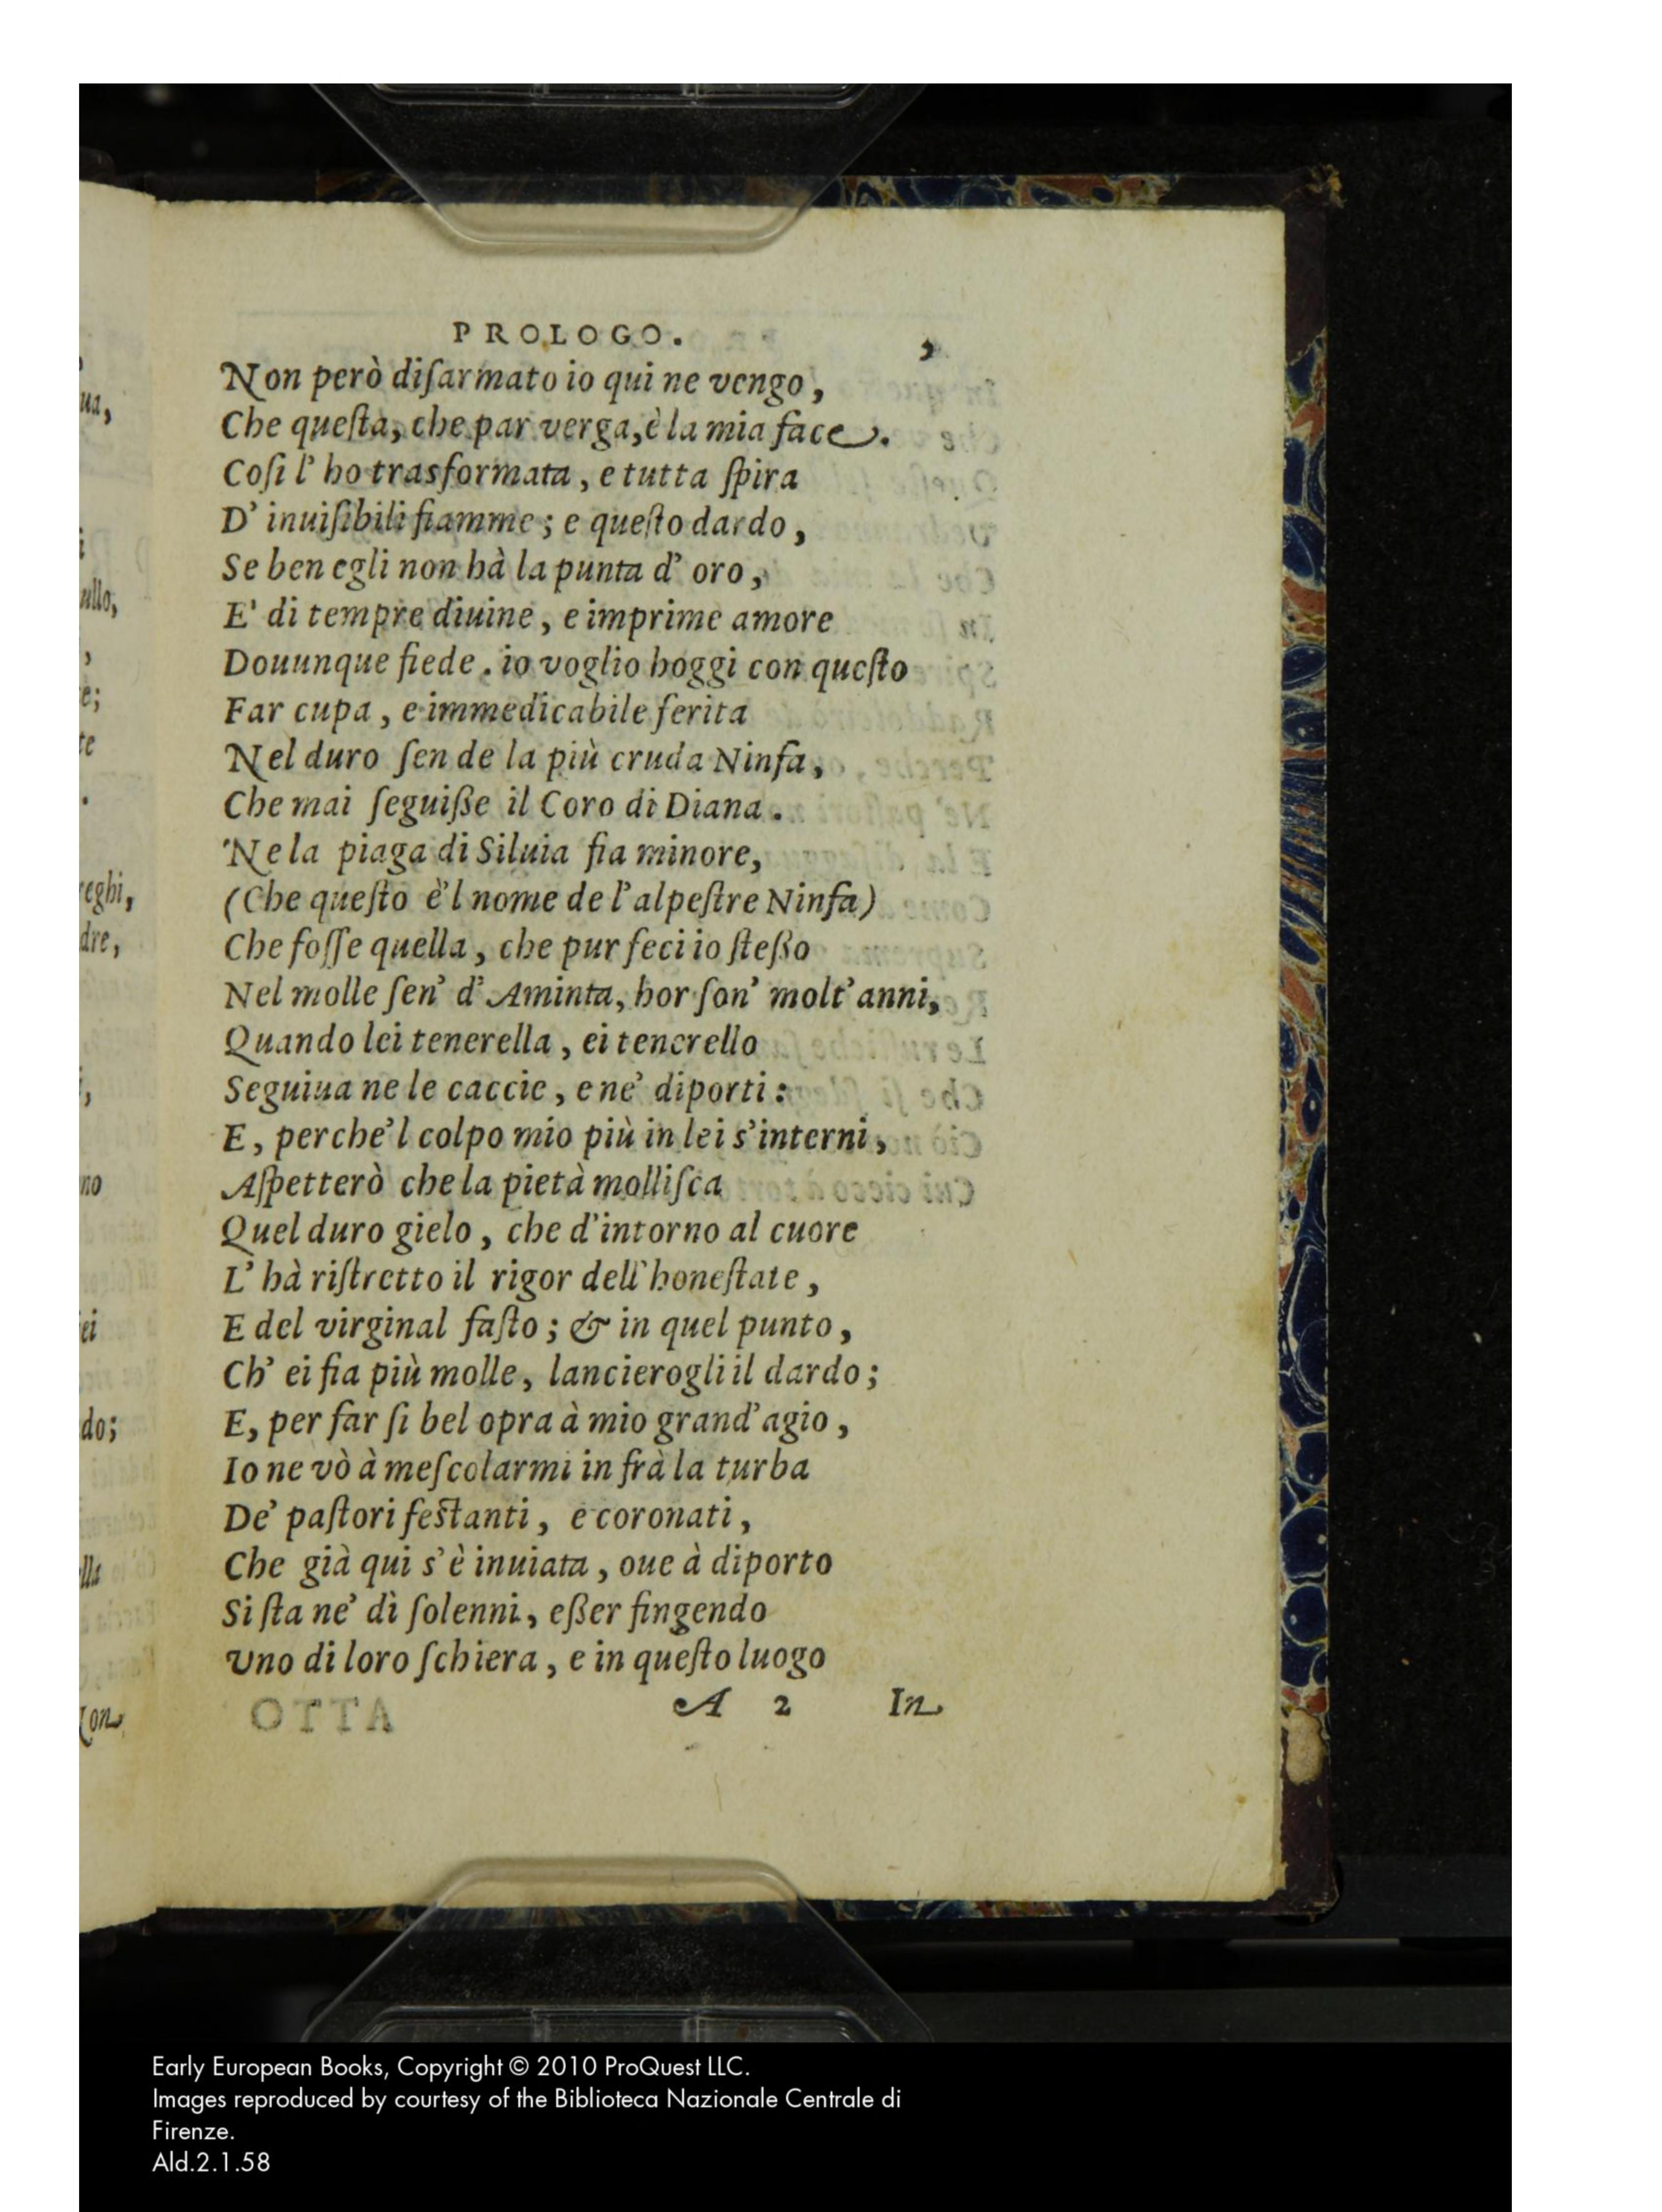 PROLOGO.
Non però diſarmato io qui ne vengo,
Che queſta, che par verga, è la mia face.
Coſi l' ho trasformata, e tutta ſpira
D' inuiſibili fiamme; e queſto dardo,
Se ben egli non hà la punta d' oro,
E' di tempre diuine, e imprime amore
Douunque fiede. io voglio hoggi con queſto
Far cupa, e immedicabile ferita
Nel duro ſen de la più cruda Ninfa,
Che mai ſeguiße il Coro di Diana.
Ne la piaga di Siluia fia minore,
(Che queſto è'l nome de l'alpeſtre Ninfa)
Che foſſe quella, che pur feci io ſteßo
Nel molle ſen' d'Aminta, hor ſon' molt'anni,
Quando lei tenerella, ei tenerello
Seguiua ne le caccie, e ne' diporti:
E, perche'l colpo mio più in lei s'interni,
Aſpetterò che la pietà molliſca
Quel duro gielo, che d'intorno al cuore
L' hà riſtretto il rigor dell'honeſtate,
E del virginal faſto; & in quel punto,
Ch' ei fia più molle, lancierogli il dardo;
E, per far ſi bel opra à mio grand'agio,
Io ne vò à meſcolarmi in frà la turba
De' paſtori feſtanti, e coronati,
Che già qui s'è inuiata, oue à diporto
Si ſta ne' dì ſolenni, eßer fingendo
Vno di loro ſchiera, e in queſto luogo
A 2 In
Early European Books, Copyright © 2010 ProQuest LLC.
Images reproduced by courtesy of the Biblioteca Nazionale Centrale di
Firenze.
Ald.2.1.58